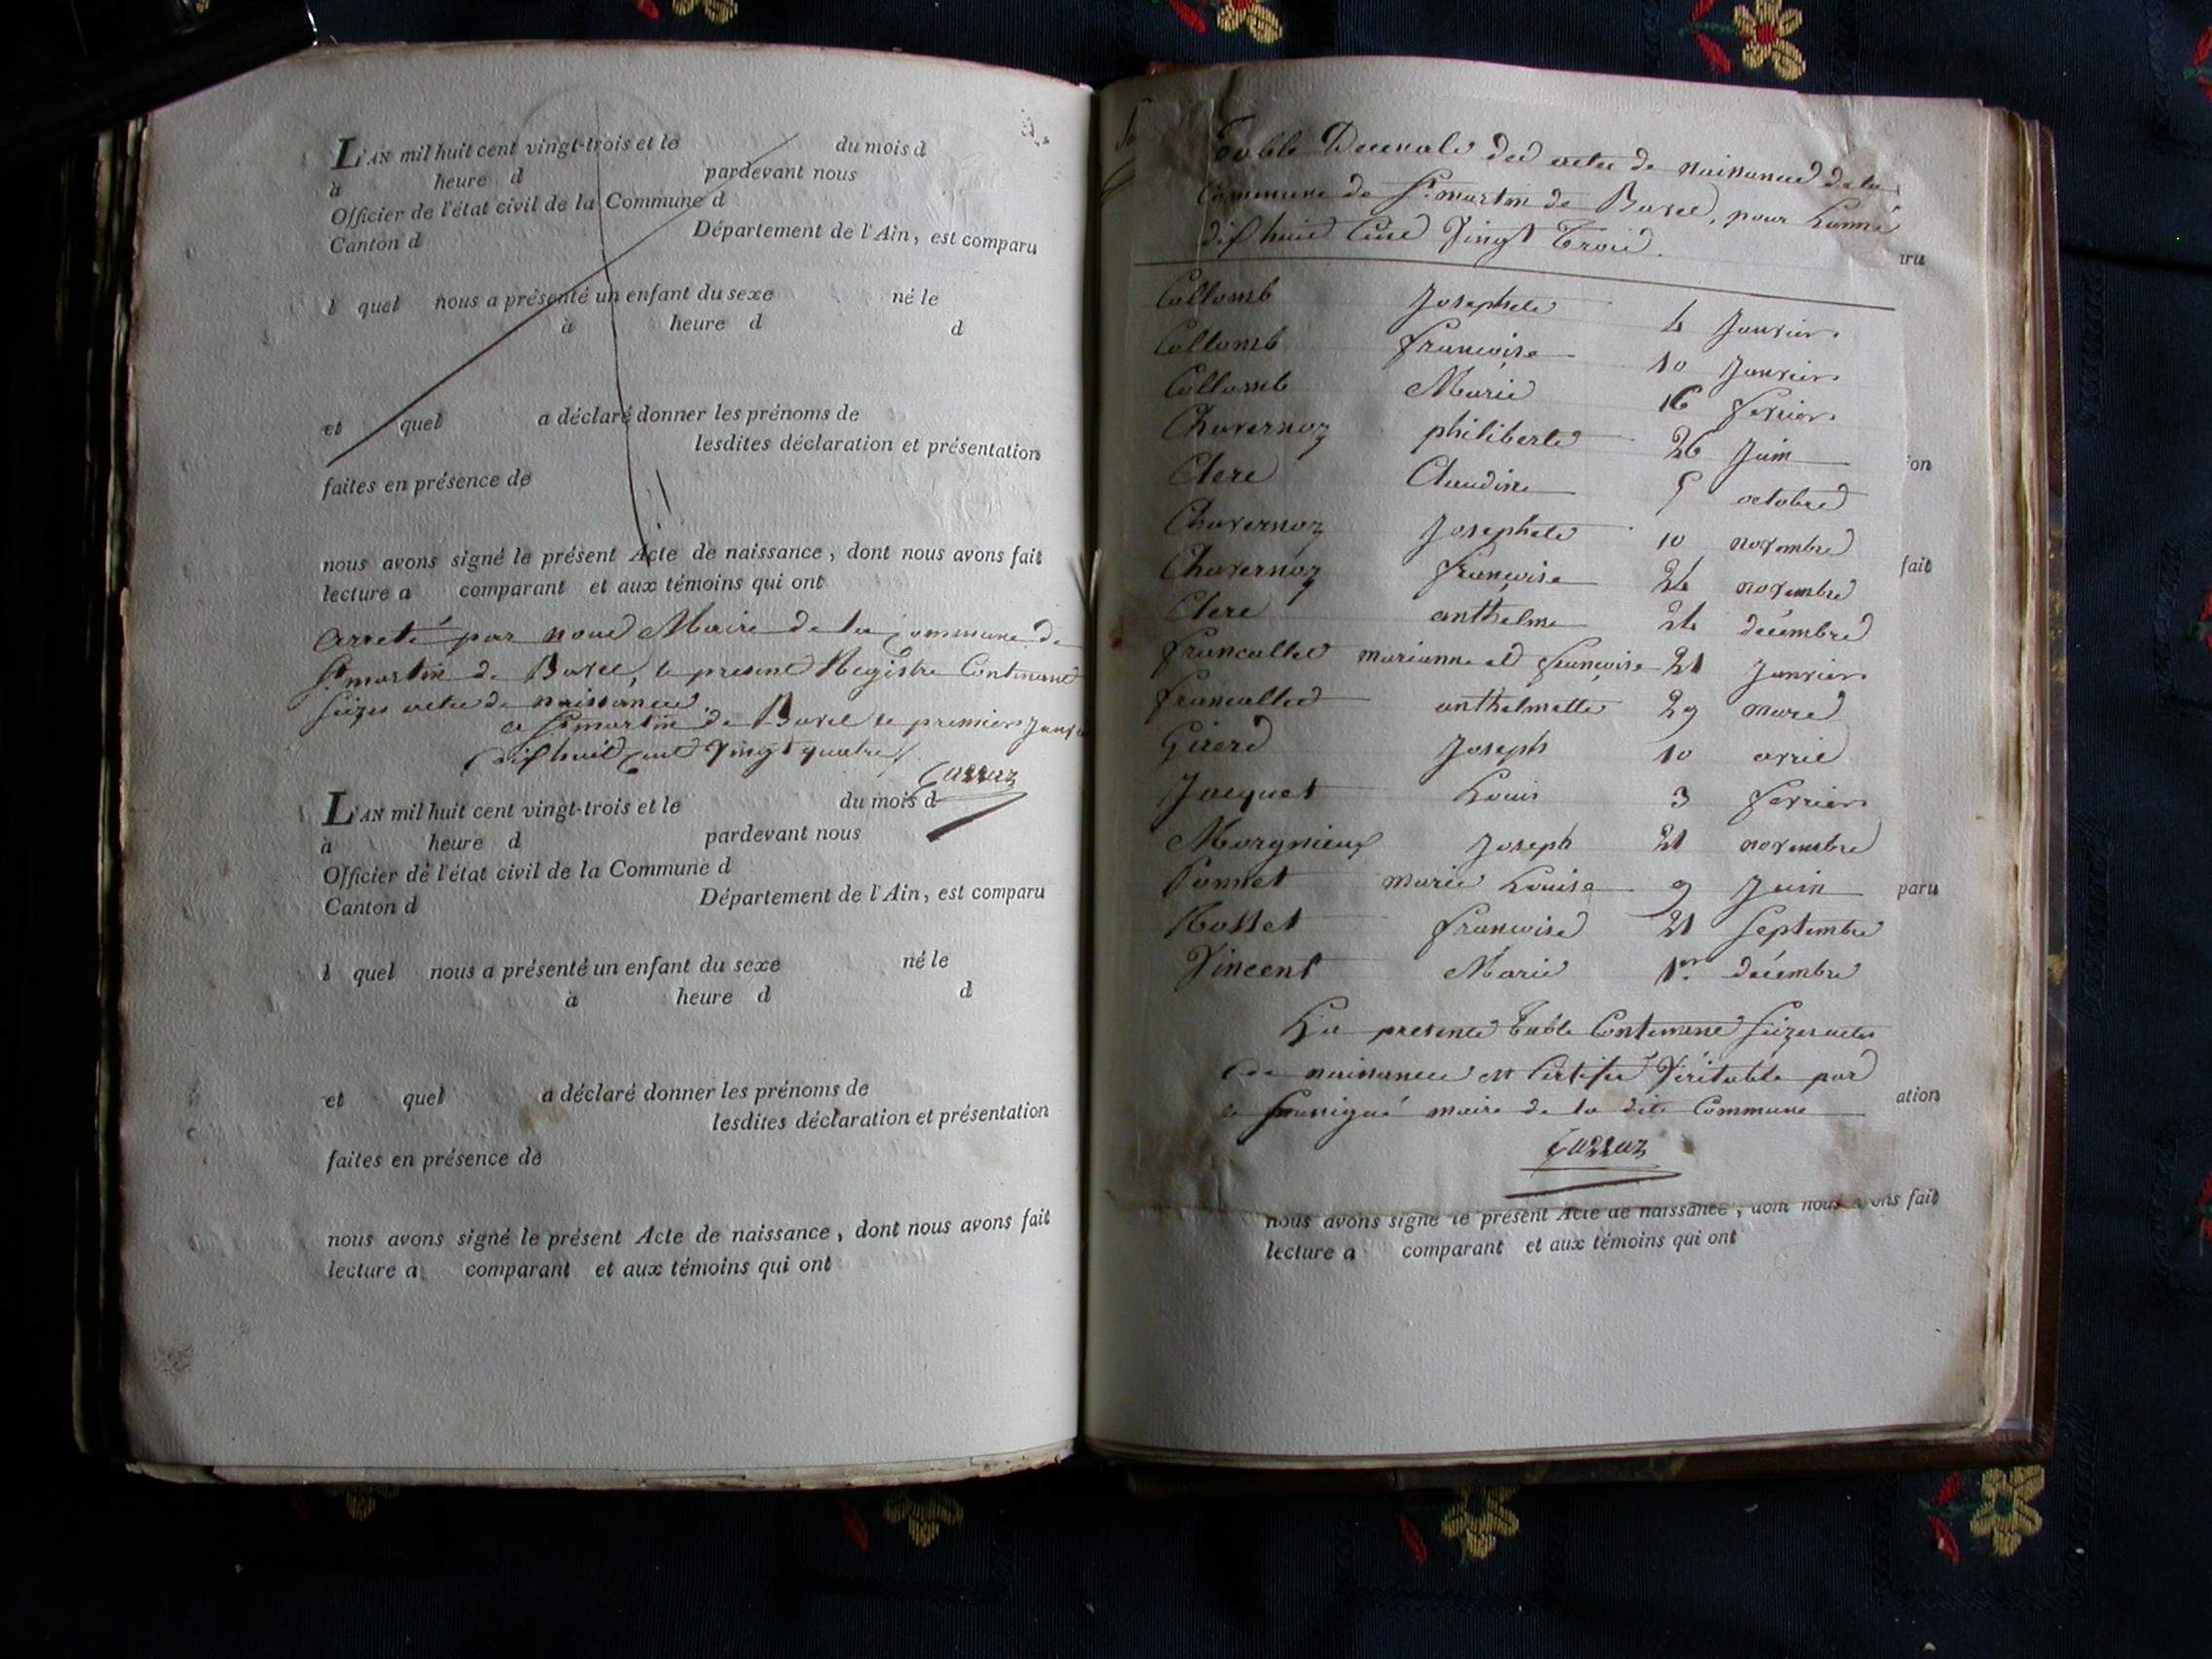 L'AN mil huit cent vingt-trois et le du mois d
à heure d pardevant nous
Officier de l'état civil de la Commune d
Canton d Département de l'Ain, est comparu
l quel nous a présenté un enfant du sexe né le
à heure d d
et quel a déclaré donner les prénoms de
lesdites déclaration et présentation
faites en présence de
nous avons signé le présent Acte de naissance, dont nous avons fait
lecture a comparant et aux témoins qui ont
arreté par nous Maire de la commune de
St martin de Bavel, le present Registre Contenant
seizes actes de naissances.
a St martin de Bavel le premier Janvier
dix huit cent vingt quatre
L'AN mil huit cent vingt-trois et le du mois d
à heure d pardevant nous
Officier de l'état civil de la Commune d
Canton d Département de l'Ain, est comparu
l quel nous a présenté un enfant du sexe né le
à heure d d
et quel a déclaré donner les prénoms de
lesdites déclaration et présentation
faites en présence de
nous avons signé le présent Acte de naissance, dont nous avons fait
lecture a comparant et aux témoins qui ont
Table Decenale des actes de naissances de la
Commune de St martin de Bavel, pour L'année
dix huit Cent Vingt Trois.
Collomb Josephete 4 Janvier
Collomb francoise 10 Janvier
Collomb Marie 16 fevrier
Chavernoz philiberte 26 Juin
Clerc Claudine 5 octobre
Chavernoz Josephete 10 novembre
Chavernoz françoise 24 novembre
Clerc anthelme 24 décembre
francallet marianne et françoise 21 Janvier
francallet anthelmette 29 mars
Girerd Joseph 10 avril
Jacquet Louis 3 fevrier
Morgnieux Joseph 21 novembre
Ponnet marie Louise 9 Juin
Rosset francoise 21 Septembre
Vincent Marie 1er décembre
La presente Table Contenant Seizes actes
de naissances est Certifié Véritable par
le Soussigné maire de la dite Commune
nous avons signé le présent Acte de naissance, dont nous avons fait
lecture a comparant et aux témoins qui ont